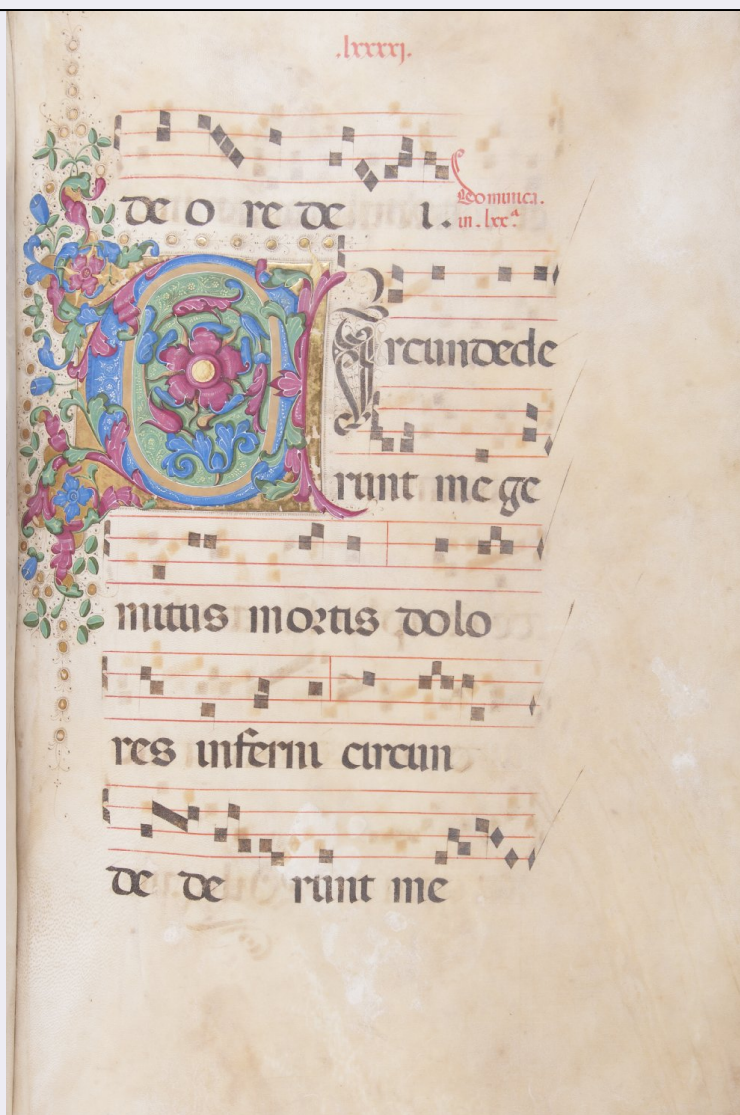 .lxxxxj.
de o re de i..
Domınıca.
in.lxx.ª
Circundede
runt me ge
mitus mortis dolo
res inferni circun
de de runt me